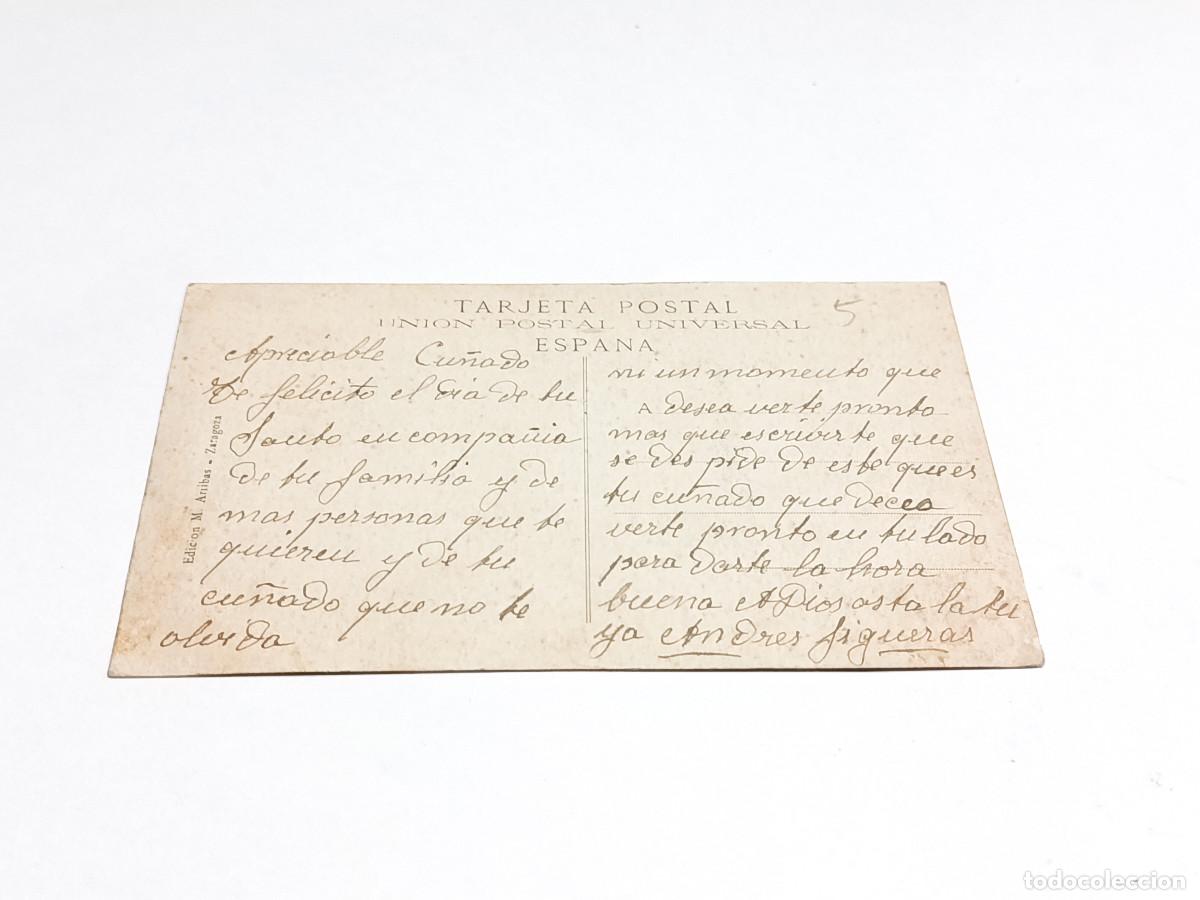 TARJETA POSTAL
UNION POSTAL UNIVERSAL
ESPAÑA
5
Apreciable Cuñado
Te felicito el dia de tu
Santo en compañia
de tu familia y de
mas personas que te
quieren y de tu
cuñado que no te
olvida
ni un momento que
A desea verte pronto
mas que escrivirte que
se des pide de este que es
tu cuñado que deceo
verte pronto en tu lado
para darte la hora
buena A Dios asta la tu
ya Andres Figueras
Edicion M. Arribas - Zaragoza
todocoleccion